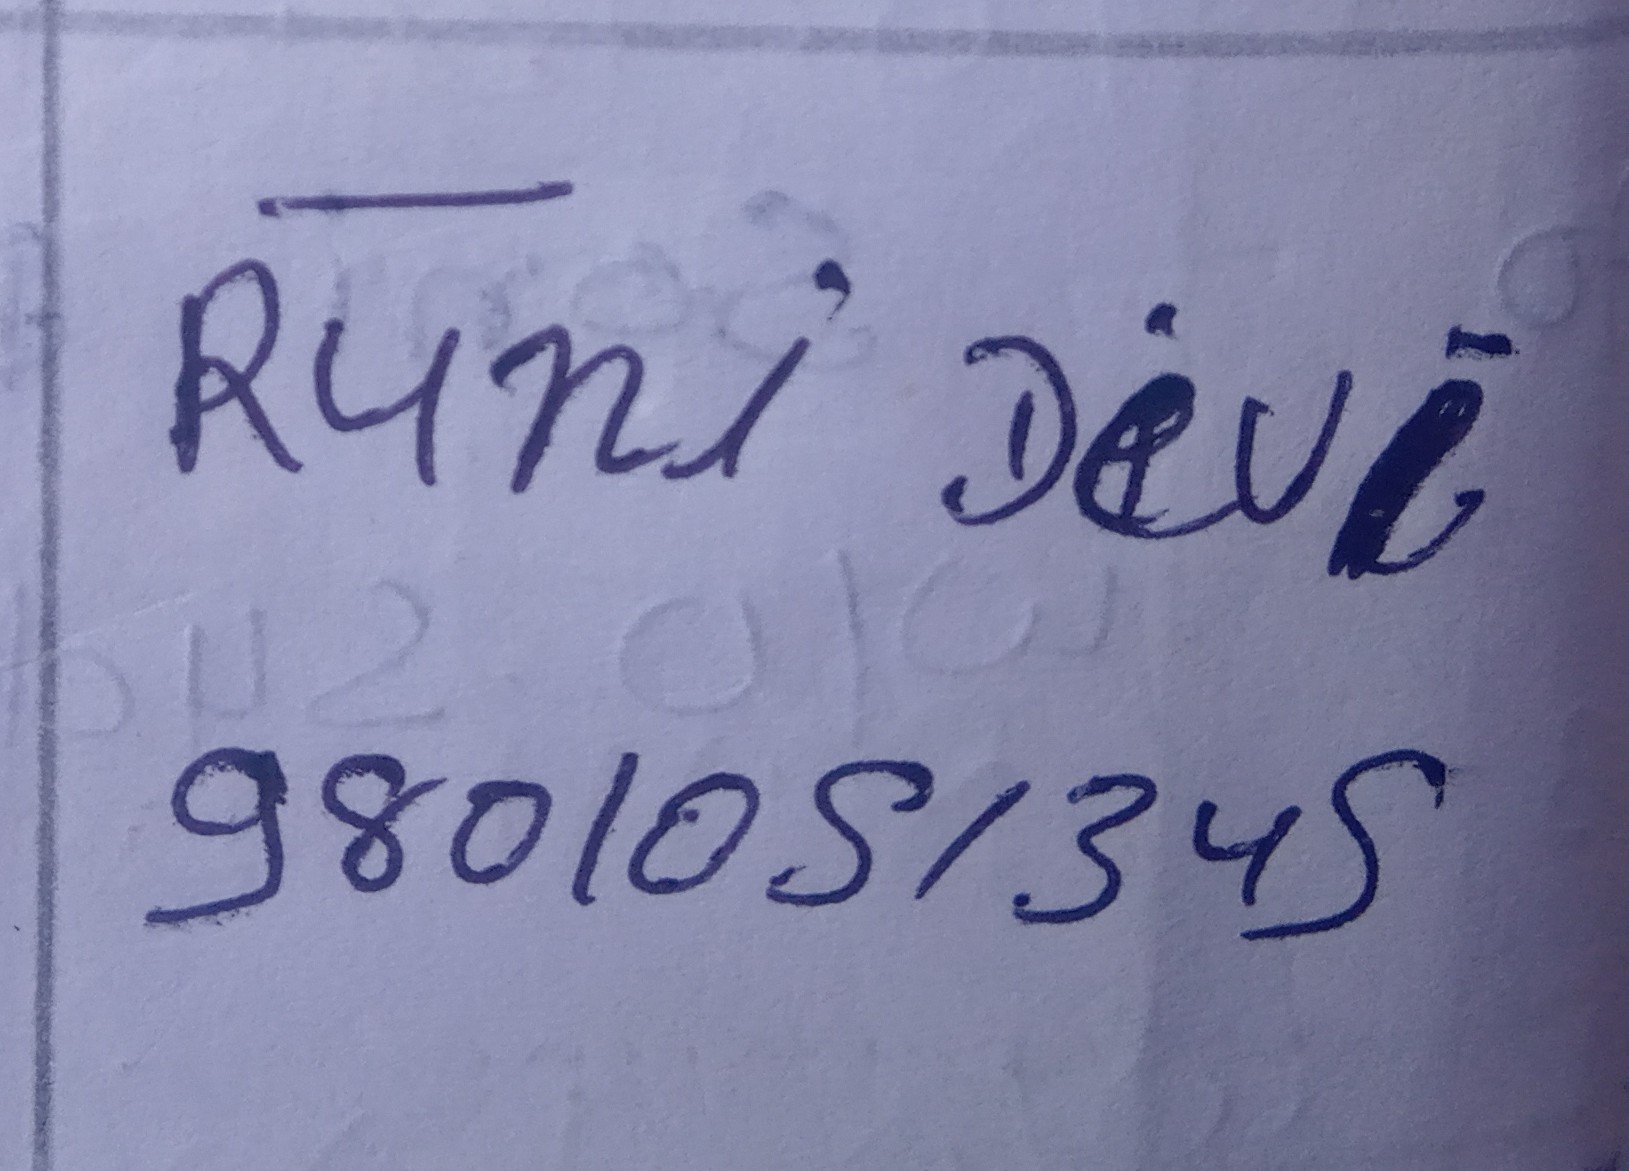 Runi Devi
9801051345